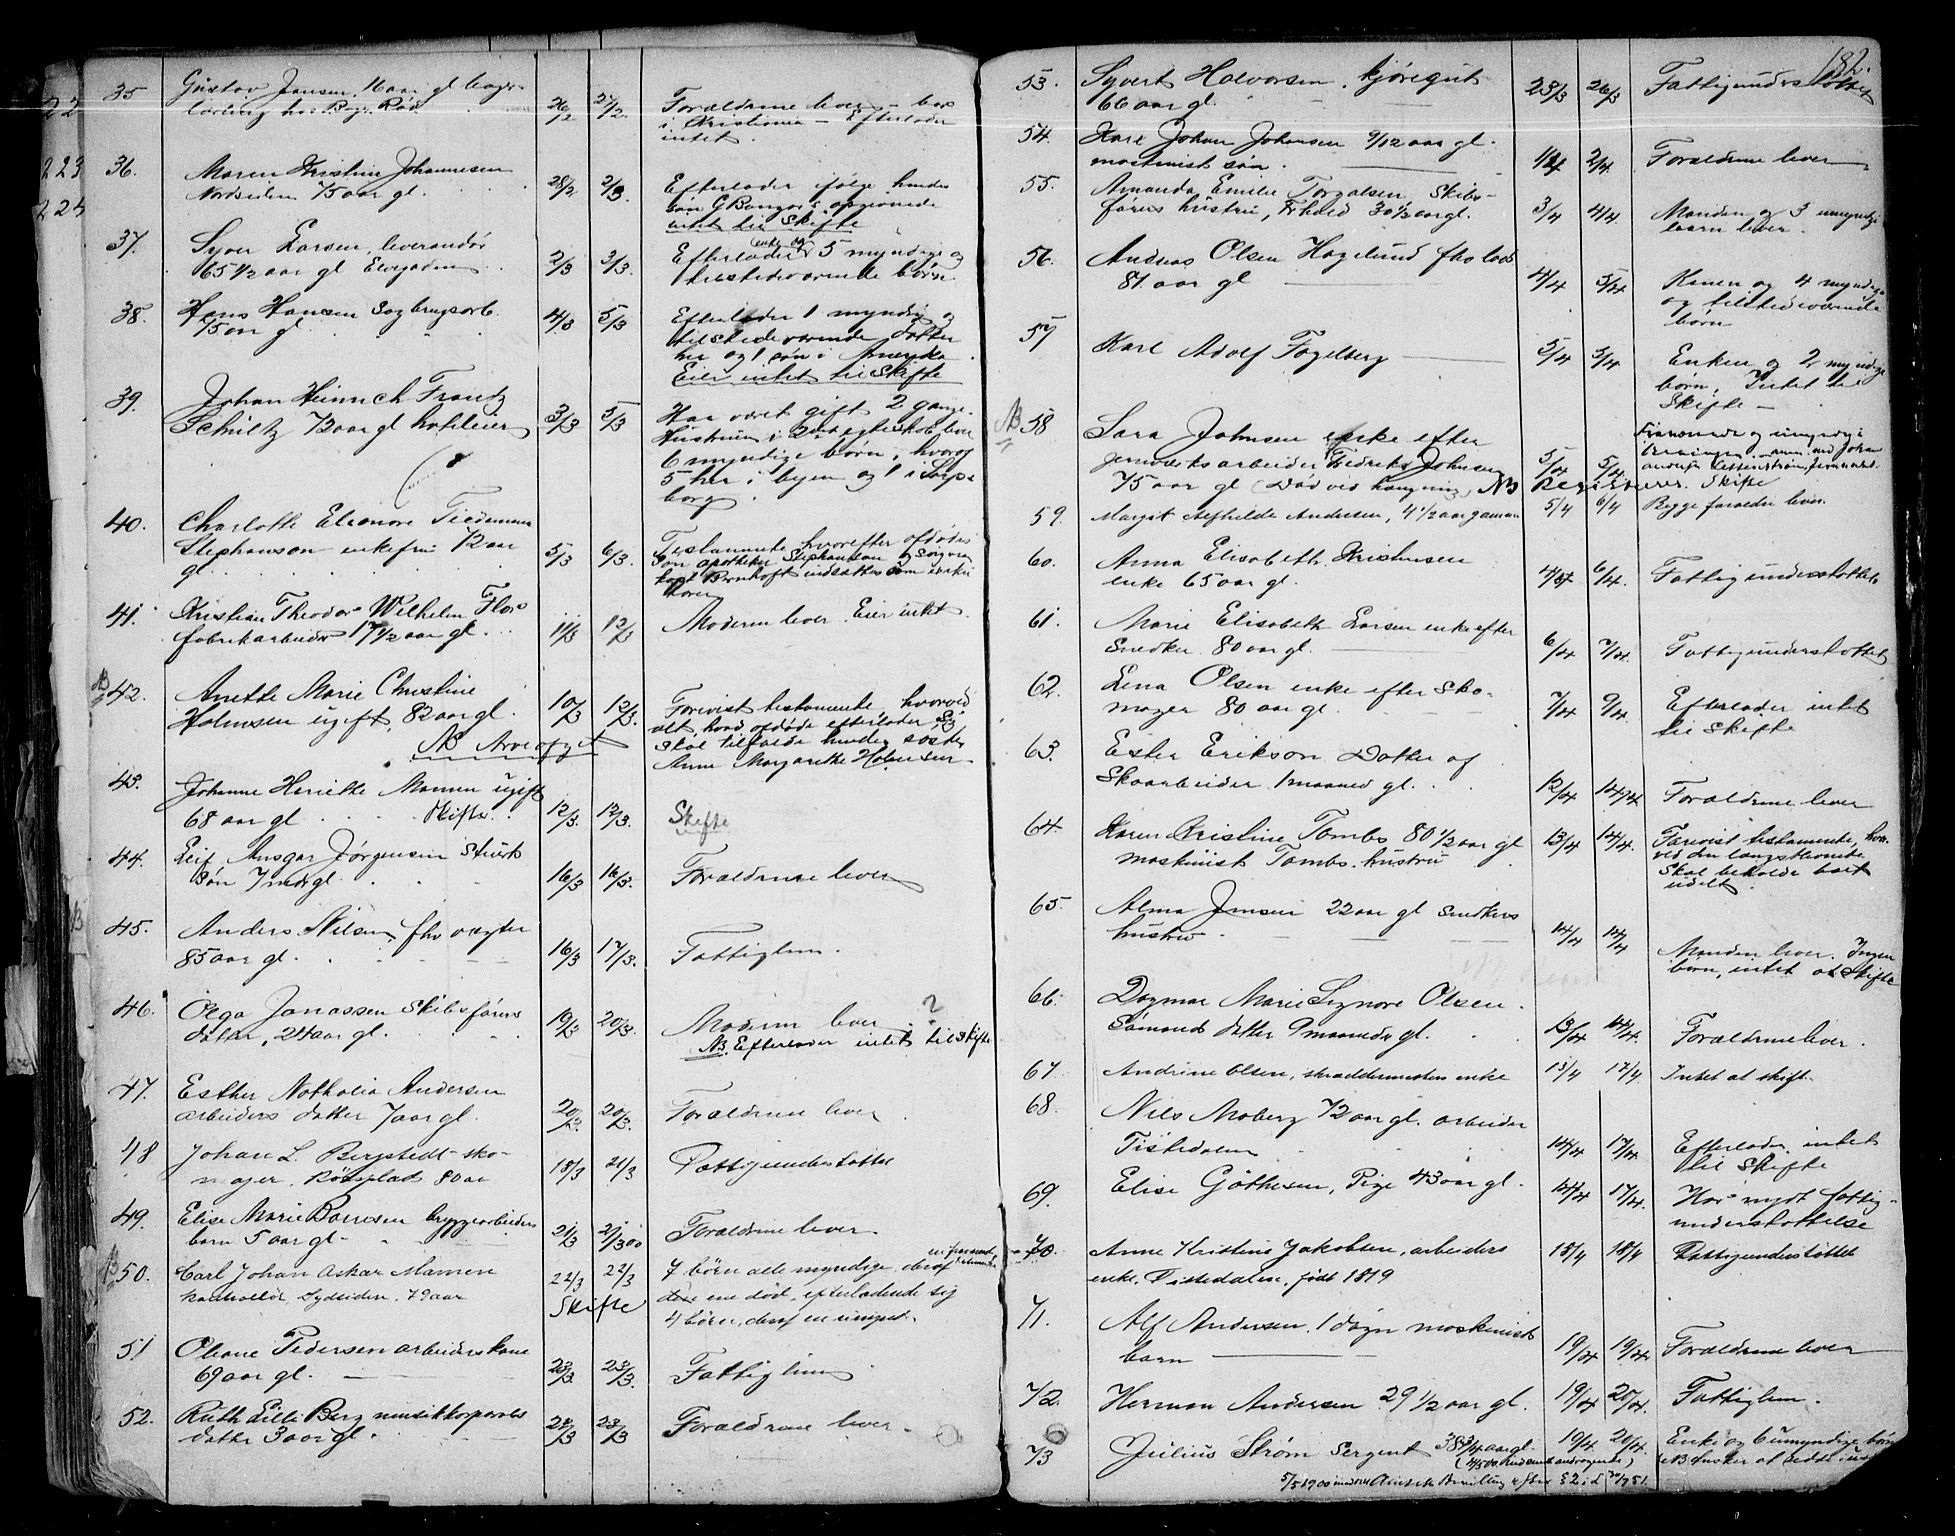 35 Gustav Jensen 16 aar gl bager-
lærling hos Bagr. Rød. 26/2 27/2 Forældrene lever – bor
i Kristiania – Efterlader
intet.
36. Maren Kristine Johannesen
Nordsiden 75 aar gl. 28/2 2/3. Efterlader ifølge hendes
søn opgivende
intet til Skifte
37. Syver Larsen, leverandør
65 1/2 aar gl Elvegaden 2/3 3/3. Efterlader enke og 5 myndige og
tilstedeværende børn.
38. Hans Hansen Sagbrugsarb.
75 aar gl. 4/3 5/3 Efterlader 1 myndig og
tilstedeværende datter
her og 1 søn i Amerika.
Eier intet til Skifte
39. Johan Heinrich Frantz
Schultz 72 aar gl 3/3 5/3 Har været gift 2 gange.
Hustruen i 2det egteskab lever
6 myndige børn, hvoraf
5 her i byen og 1 i Sarps-
borg.
40. Charlotte Eleonore Tiedemann
Stephanson enkefru 72 aar
gl. 5/3 6/3. Testamente, hvorefter afdødes
Søn apotheker Stephanson og
indsattes som
41. Kristian Theodor Wilhelm Flor
fabrikarbeider 17 1/2 aar gl. 11/3 12/3 Moderen lever. Eier intet.
NB 42. Anette Marie Christine
Holmsen ugift, 82 aar gl. 10/3 12/3. Forevist testamente hvorved
alt, hvad afdøde efterlader sig
NB Arveafgift skal tilfalde hendes søster
Anne Margarethe Holmsen
43. Johanne Henriette Mamen ugift
68 aar gl Skifte. 12/3. 12/3. Skifte
44. Leif Ansgar Jørgensen
søn 7 mdr gl. 16/3 16/3. Forældrene lever
45. Anders Nilsen, fhv vægter
85 aar gl. 16/3 17/3. Fattiglem.
46. Olga Jonassen Skibsførers
datter, 24 aar gl. 19/3 20/3. Moderen lever. ?
NB. Efterlader intet til skifte
47. Esther Nathalia Andersen
arbeiders datter 7 aar gl. 20/3. 20/3. Forældrene lever
48 Johan L. Bergstedt sko-
mager, Rødsplads 80 aar 18/3 21/3 Fattigunderstøttet
49. Elise Marie bryggearbeiders
barn 5 aar gl. 21/3 21/3 00 Forældrene lever
50. Carl Johan Askar Mamen
kontrollør, Sydsiden, 79 aar 22/3 22/3 7 børn alle myndige, deraf
Skifte ene død, efterladende sig
4 børn, deraf en umynd.
51 Oleane Pedersen arbeiderskone
69 aar gl. 23/3 23/3. Fattiglem
52. Ruth Lilli Berg musikkorporals
datter 3 aar gl. 23/3 23/3 Forældrene lever.
182.
53. Syvert Halvorsen, kjøregut
66 aar gl. 23/3 26/3 Fattigunderstøttet
54. Karl Johan Johansen 9/12 aar gl.
maskinist søn. 1/4 2/4. Forældrene lever
55. Amanda Emilie Torgalsen, Skibs-
førers hustru, Frhald 30 1/2 aar gl. 3/4 4/4. Manden og 3 umyndige
børn lever.
56. Andreas Olsen Hagelund fhv lods
81 aar gl 4/4 5/4 Konen og 4 myndige
og tilstedeværende
børn
57 Karl Adolf Fagelberg 5/4 5/4 Enken og 2 myndige
børn, Intet til
Skifte –
NB 58 Sara Johnsen enke efter
jernværksarbeider Fredrik Johnsen
75 aar gl (død ved hængning) NB 5/4 5/4 Registreres. Skifte
59. Margit Alfhilde Andersen, 4 1/2 aar gammel 5/4 6/4 Begge forældre lever.
60. Anna Elisabeth Kristensen
enke 65 aar gl. 4/4 6/4. Fattigunderstøttet
61. Marie Elisabeth Larsen enke efter
Snedker 80 aar gl. 6/4 7/4. Fattigunderstøttet
62. Lena Olsen enke efter Sko-
mager 80 aar gl. 7/4 9/4. Efterlader intet
til Skifte
63. Ester Erikson Datter af
Skoarbeider 1 maaned gl. 12/4 14/4 Forældrene lever
64. Karen Kristine Tombs 80 1/2 aar gl
maskinist Tombs hustru 13/4 14/4. Forevist testamente, hvor-
ved den længstlevende
skal beholde boet
udelt.
65. Alma Jensen 22 aar gl Snedkers
hustru. 14/4 14/4 Manden lever. Ingen
børn, intet at skifte
66. Dagmar Marie Signore Olsen.
Sømands datter 9 maaneder gl. 13/4 14/4. Forældrene lever.
67 Andrine Olsen, skræddermesters enke 13/4 17/4 Intet at skift.
68. Nils Moberg 72 aar gl. arbeider
Tistedalen 14/4 17/4 Efterlader intet
til Skifte
69. Elise Gøthesen, Pige 43 aar gl. 14/4 17/4. Har nydt fattig-
understøttelse
70. Anne Kristine Jakobsen, arbeiders
enke. Tistedalen, født 1819 15/4 18/4 Fattigunderstøttet
71. Alf Andersen, 1 døgn maskinist
barn 19/4 19/4. Forældrene lever
72. Herman Andersen 29 1/2 aar gl. 19/4 20/4. Fattiglem.
73 Julius Strøm Sergent 38 3/4 aar gl. 19/4. 20/4. Enke og 6 umyndige børn
NB ønsker at sidde i uskiftet